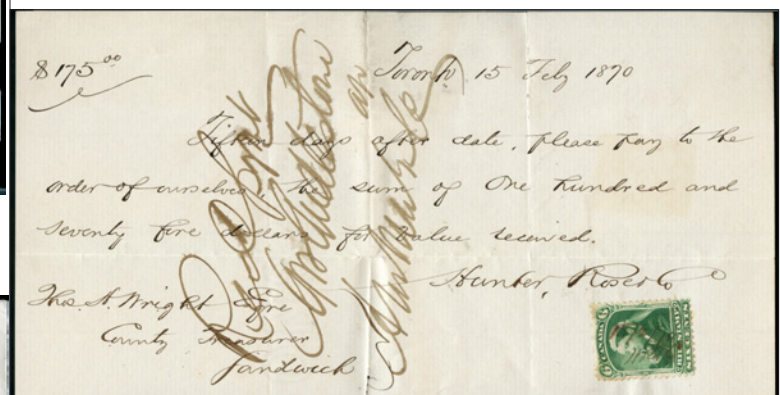 $175.00 Toronto 15 Feby 1870
Fifteen days after date, please pay to the
order of ourselves, the sum of One hundred and
seventy five dollars for value received.
Hunter, Rose & Co
Thos. H. Wright Esqre
County Treasurer
Sandwich
CANADA
BILL STAMP
SIX CENTS